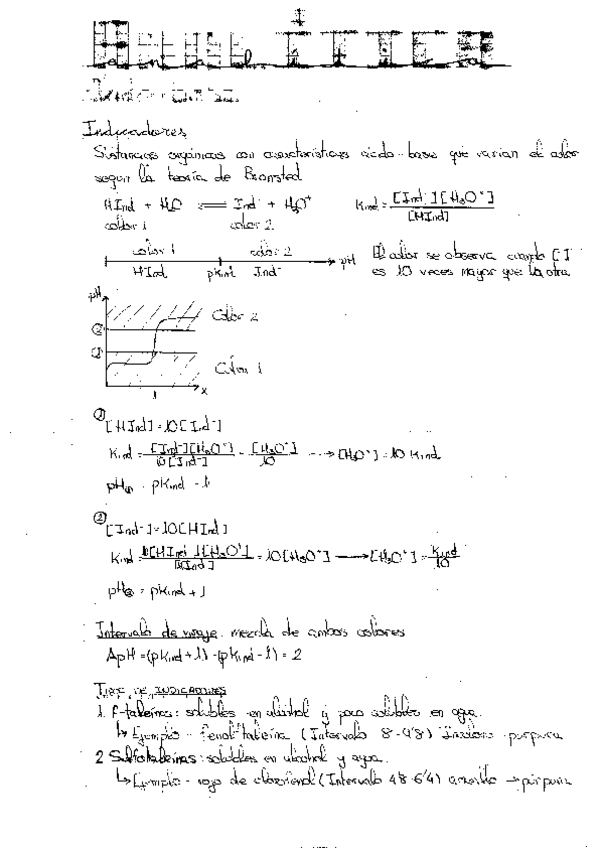 Indicadores
Sustancias orgánicas con características ácido-base que varían el color
según la teoría de Bronsted
HInd + H₂O ⇌ Ind⁻ + H₃O⁺ Kind = [Ind⁻][H₃O⁺] / [HInd]
color 1 color 2
color 1 color 2 pH El color se observa cuando [ ]
HInd pKind Ind⁻ es 10 veces mayor que la otra
pH
② Color 2
①
Color 1
1 x
① [HInd] = 10[Ind⁻]
Kind = [Ind⁻][H₃O⁺] / 10[Ind⁻] = [H₃O⁺] / 10 → [H₃O⁺] = 10 Kind
pH① = pKind - 1
② [Ind⁻] = 10[HInd]
Kind = 10[HInd][H₃O⁺] / [HInd] = 10[H₃O⁺] → [H₃O⁺] = Kind / 10
pH② = pKind + 1
Intervalo de viraje: mezcla de ambos colores
ΔpH = (pKind + 1) - (pKind - 1) = 2
TIPOS DE INDICADORES
1. Ftaleínas: solubles en alcohol y poco solubles en agua.
↳ Ejemplo - Fenolftaleína (Intervalo 8-9'8) Incoloro - púrpura
2 Sulfoftaleínas: solubles en alcohol y agua.
↳ Ejemplo - rojo de clorofenol (Intervalo 4'8-6'4) amarillo → púrpura